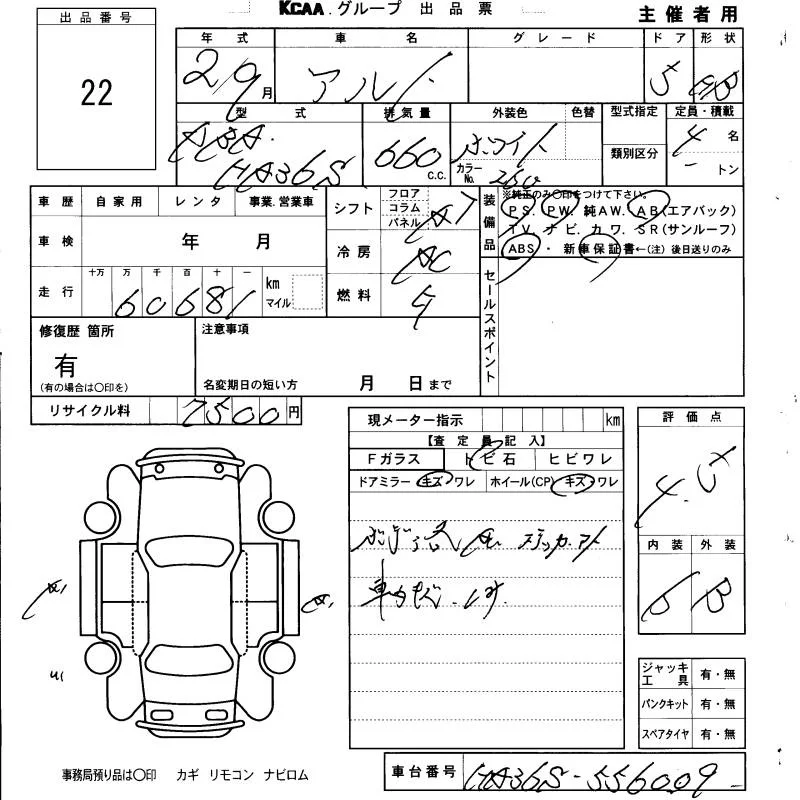 KCAA.グループ 出品票
主催者用
出品番号
22
年式 車名 グレード ドア 形状
29月 アルト 5 HB
型式 排気量 外装色 色替 型式指定 定員・積載
DBA- 660 c.c. ホワイト 4 名
HA36S カラーNo. 26U 類別区分 - トン
車歴 自家用 レンタ 事業.営業車
車検 年 月
走行 十万 万 千 百 十 一
60681 km マイル
シフト フロア コラム パネル AT
冷房 AC
燃料 ガ
装備品 ※純正のみ○印をつけて下さい。
PS. PW. 純AW. AB(エアバック)
TV. ナビ. カワ. SR(サンルーフ)
ABS ・ 新車保証書←(注) 後日送りのみ
セールスポイント
修復歴 箇所
有
(有の場合は○印を)
注意事項
名変期日の短い方 月 日まで
リサイクル料 7500円
現メーター指示 km
【査定員記入】
Fガラス トビ石 ヒビワレ
ドアミラー キズ・ワレ ホイール(CP) キズ・ワレ
評価点
4.5
内装 外装
B
A1
A1
U1
ジャッキ工具 有・無
パンクキット 有・無
スペアタイヤ 有・無
事務局預り品は○印 カギ リモコン ナビロム
車台番号 HA36S-556009-